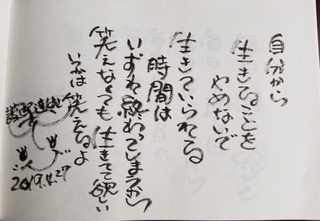 自分から
生きることを
やめないで
生きていられてる
時間は
いずれ終れてしまうから
笑えなくても生きて欲しい
いつかは笑えるよ
2019.4.27